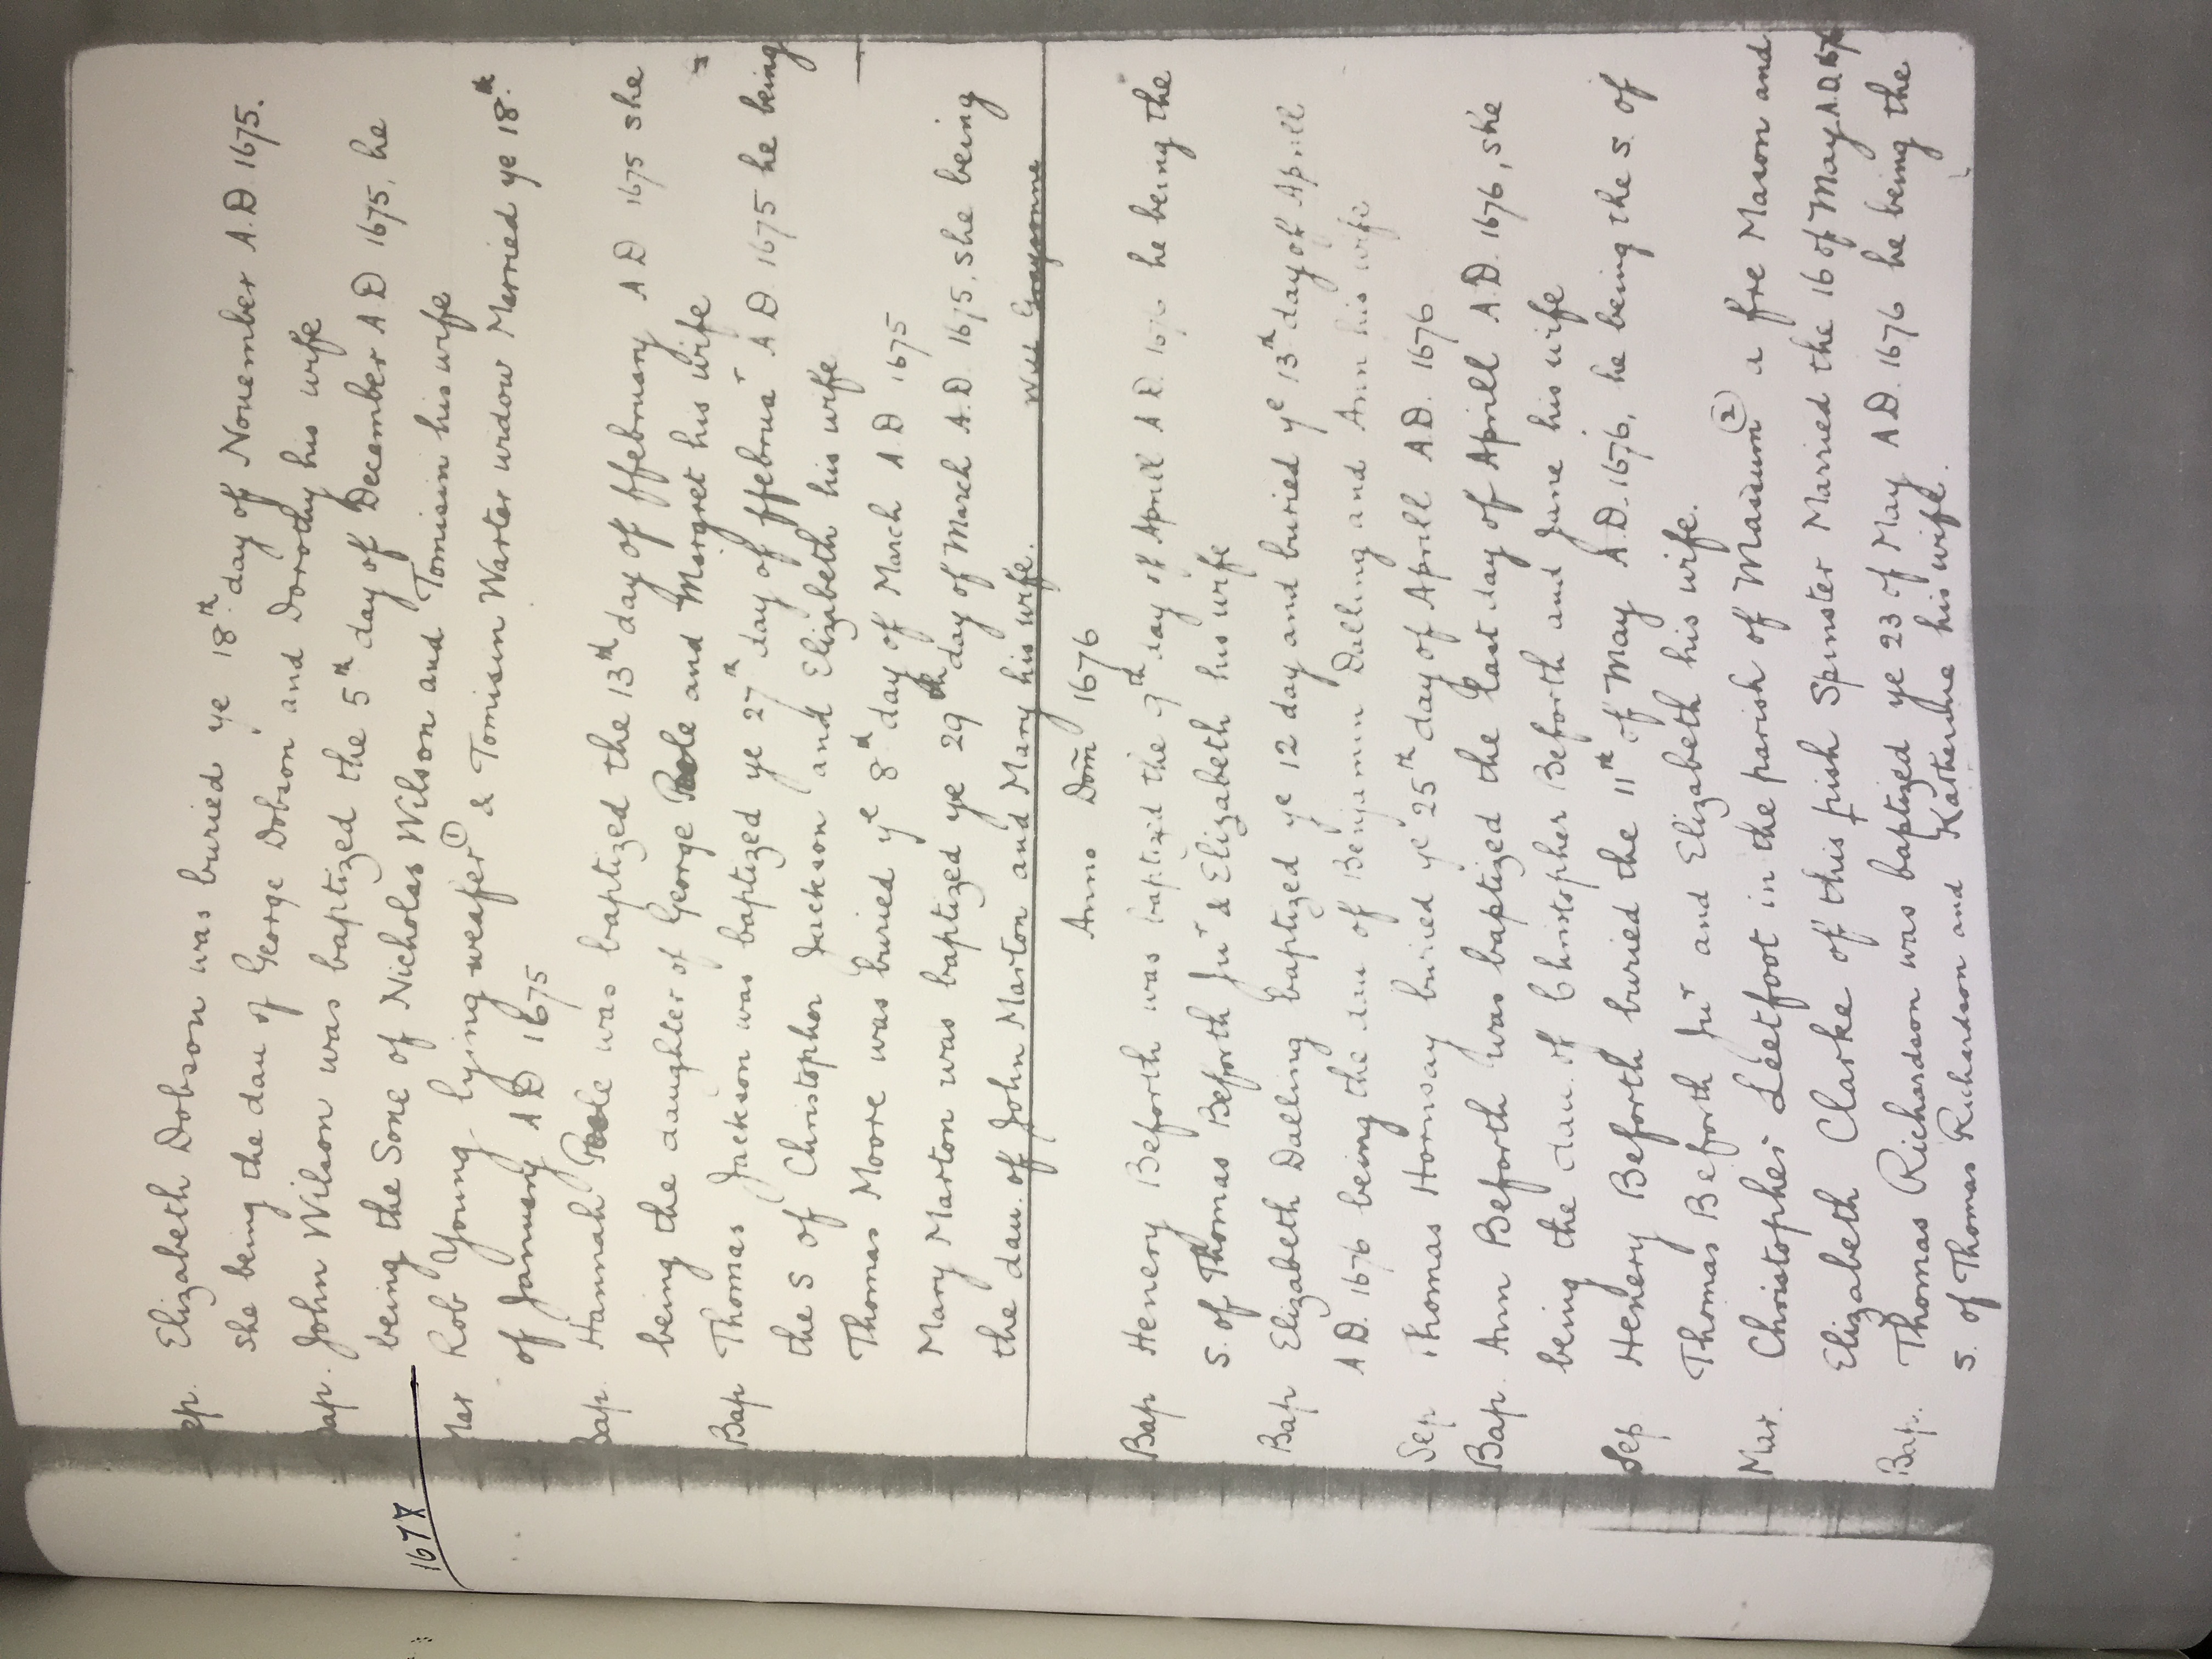 ep. Elizabeth Dobson was buried ye 18th day of November A.D. 1675.
She being the dau of George Dobson and Dorothy his wife
Bap. John Wilson was baptized the 5th day of December A.D 1675, he
being the Sone of Nicholas Wilson and Tomisin his wife
1677
Mar Rob Young lying weafer ① & Tomisin Warter widow Married ye 18th
of January A D 1675
Bap. Hannah Poole was baptized the 13th day of ffebruary A D 1675 she
being the daughter of George Poole and Margret his wife
Bap Thomas Jackson was baptized ye 27th day of ffebruar A D. 1675 he being
the s of Christopher Jackson and Elizabeth his wife
Thomas Moore was buried ye 8th day of March A.D 1675
Mary Marton was baptized ye 29th day of March A.D. 1675, she being
the dau. of John Marton and Mary his wife.
Will Graysonne
Anno Dom 1676
Bap Henery Beforth was baptized the 9th day of Aprill A D. 1676 he being the
S. of Thomas Beforth Jur & Elizabeth his wife
Bap Elizabeth Dalling baptized ye 12 day and buried ye 13th day of Aprill
A.D. 1676 being the dau of Benjamin Dalling and Ann his wife
Sep Thomas Hornsay buried ye 25th day of Aprill A.D. 1676
Bap. Ann Beforth was baptized the last day of Aprill A.D. 1676, she
being the dau. of Christopher Beforth and Jane his wife
Sep Henery Beforth buried the 11th of May A.D. 1676, he being the s. of
Thomas Beforth Jur and Elizabeth his wife.
Mar. Christopher Leetfoot in the parish of Massum ② a free Mason and
Elizabeth Clarke of this pish Spinster Married the 16 of May A.D. 1676
Bap. Thomas Richardson was baptized ye 23 of May A.D. 1676 he being the
s. of Thomas Richardson and Katherine his wife.